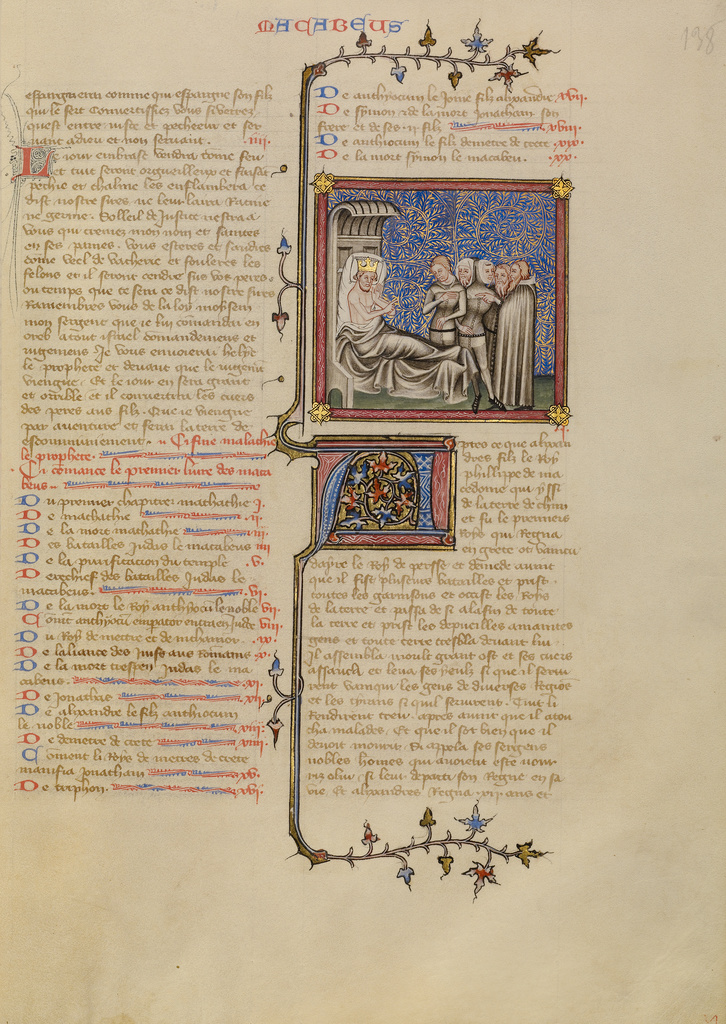 MACABEUS
138
espargneran comme qui espargne son filz
qui le sert Convertissiez vous si verrez
quest entre iuste et pecheeur et ser
vant a dieu et non servant. iiii.
Le iour embrase vendra come feu
et tuit seront orguilleux et
et chalme les enflambera ce
dist nostre sires ne leur laira Racine
ne germe. Solleil de Iustice nestra a
vous qui cremez mon nom et santez
en ses pannes. vous esteres et saudrez
come veel de vacherie et fouleres les
felons et il seront cendre sus vos piez
ou temps que ce sera ce dist nostre sires
Ramembres vous de la loy moysem
mon sergent que ie luy comandai en
oreb a tout israel comandemens et
iugemens Ie vous envoierai helye
le prophete et devant que le iugement
viengne. Et le iour en sera grant
et orrible et il convertira les cuers
des peres aus filz. Que ie viengne
par aventure et fenri la terre de
escommuniement. Ci fine malachie
le prophete.
Ci comance le premier livre des maca
beus
Du premier chapitre mathathie i.
De mathathie ii.
De la mort mathathie iii.
Des batailles Iudas le macabeus iiii
De la purification du temple v.
Derechief des batailles Iudas le
macabeus. vi.
De la mort le Roy anthyocu le noble vii.
Coment anthyocu empator entra en Iude viii.
Du Roy de metre et de nichanor. ix.
De laliance des Iuifs aus Romains x.
De la mort Iudas le ma
cabeus. xi.
De Ionathas xii.
De alixandre le filz anthiocum
le noble xiii.
De demetre de crete xiiii.
Coment li Roys de metres de crete
Ionatham xv.
De tryphon. xvi.
De anthyocum le Ione filz alixandre xvii.
De symon et de la mort Ionathan son
frere et de ses .ii. filz xviii.
De anthiocum le filz demetre de crete xix.
De la mort symon le macabeu. xx.
Apres ce que alixan
dres filz le Roy
phillippe de ma
cedome qui yssi
de la terre de chim
et fu le premiers
Roys qui Regna
en grece ot vaincu
dayre le Roy de persse et de mede avint
que il fist plusieurs batailles et prist
toutes les garnisons et occist les Roys
de la terre et passa de si a la fin de toute
la terre et prist les depueilles a maintes
gens et toute terre trembla devant lui
Il assembla moult grant ost et ses cuers
essauca et leva ses yeulz si que il seurn
rent vainqui les gens de diverses Regios
et les tyrans si quil Tuit li
Rendirent treu. apres avint que il acou
cha malades. Et que il sot bien que il
devoit mourir. Si appela ses sergens
nobles homes qui avoient este nour
riz o lui si leur departi son Regne en sa
vie. Et alixandres Regna .xii. ans et